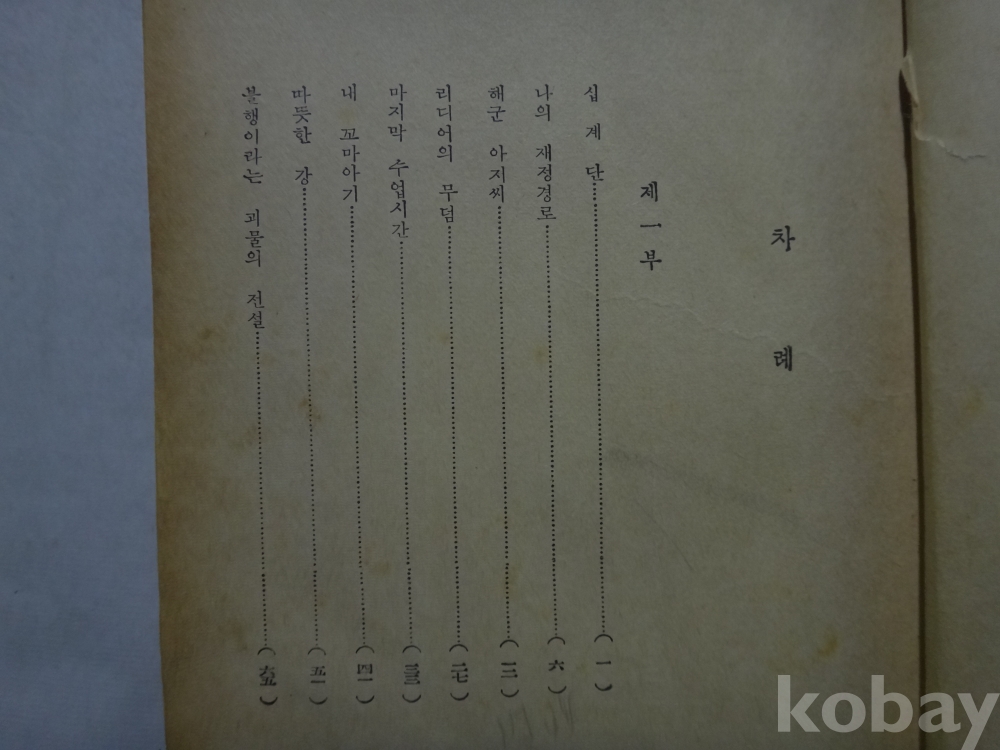 차 례
제 一 부
십 계 단……(一)
나의 재정경로……(六)
해군 아지씨……(一二)
리디어의 무덤……(二七)
마지막 수업시간……(三三)
내 꼬마아기……(四一)
따듯한 강……(五一)
불행이라는 괴물의 전설……(六五)
kobay